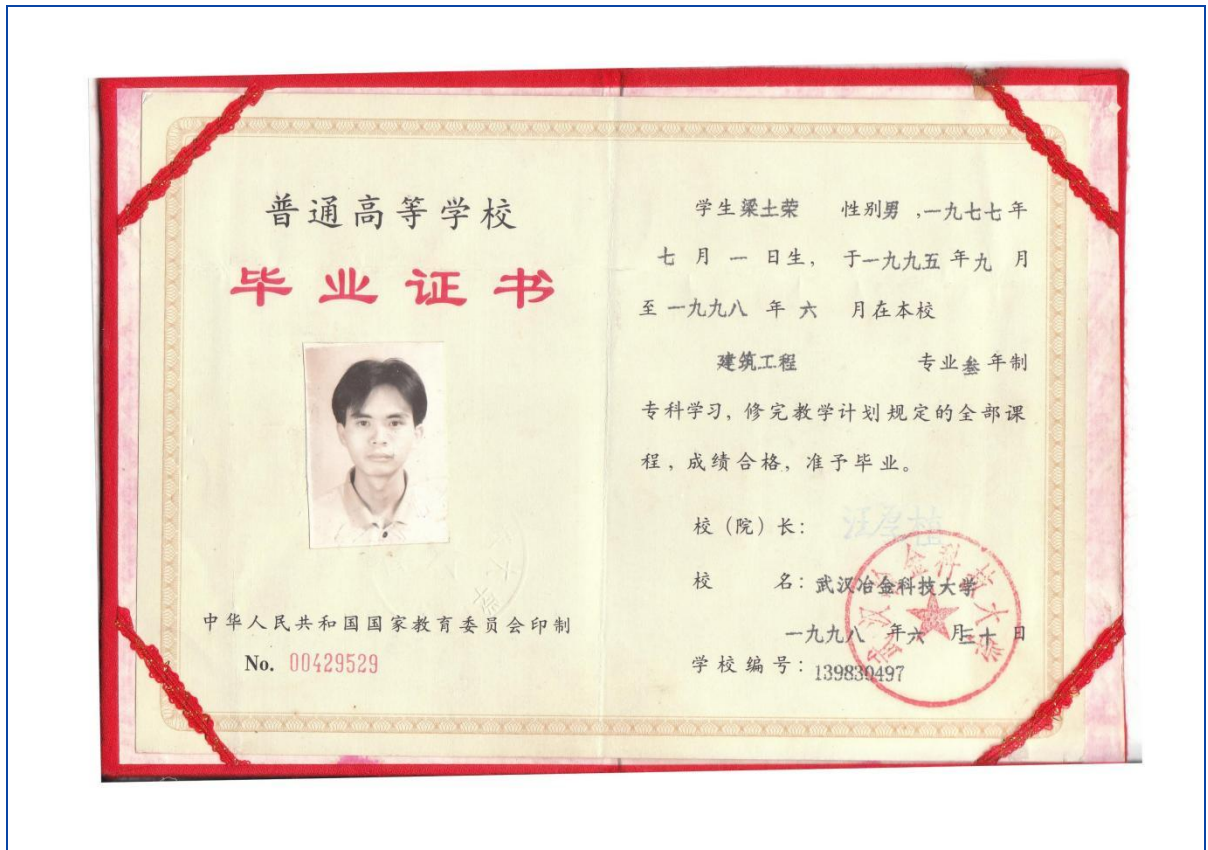 普通高等学校
毕业证书
中华人民共和国国家教育委员会印制
No. 00429529
学生梁土荣 性别男 ,一九七七年
七月一日生, 于一九九五年九月
至一九九八年六月在本校
建筑工程 专业叁年制
专科学习, 修完教学计划规定的全部课
程, 成绩合格, 准予毕业。
校(院)长:
校名: 武汉冶金科技大学
武汉冶金科技大学
一九九八年六月三十日
学校编号: 139830497